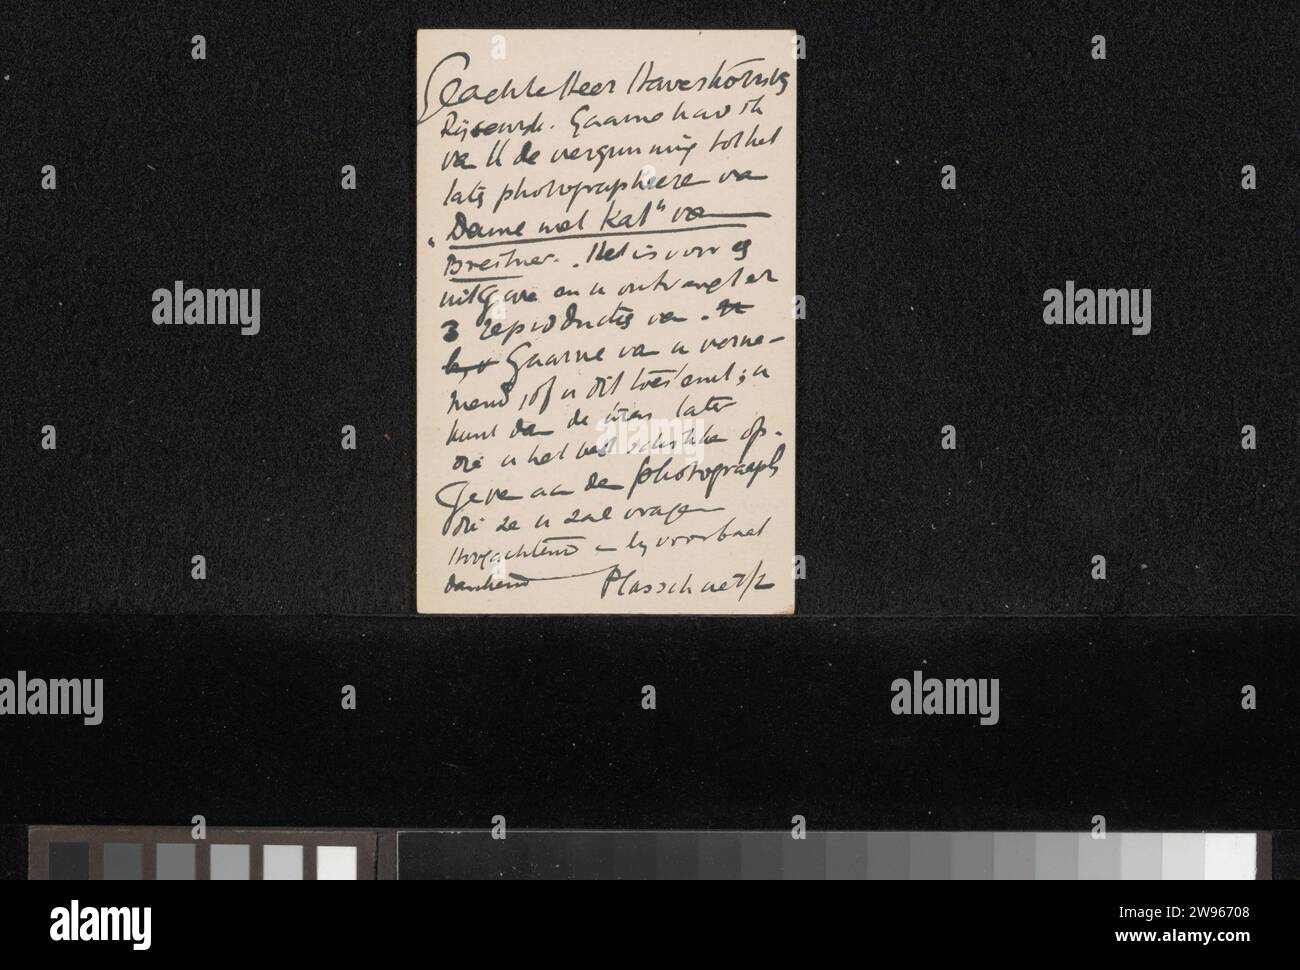 Geachte Heer Haverkorn v
Rijsewijk. Gaarne had ik
van U de vergunning tot het
late photographeere van
"Dame met Kat" van
Breitner. Het is voor
uitgave en u ontvangt er
3 reproducties van.
Gaarne van u verne-
mend, of u dit toestemt; u
kunt dan de later
die u het best op-
geve aan den photograaph
die ze u zal vragen
Hoogachtend en bij voorbaat
dankend Plasschaert
alamy
alamy
alamy
alamy
alamy
alamy
Image ID: 2W96708
www.alamy.com